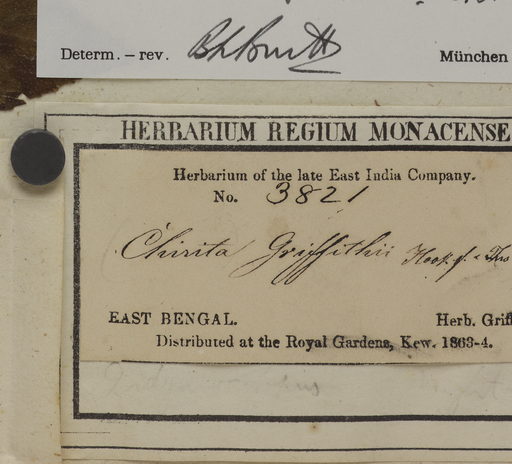 Determ. – rev. B L Burtt München
HERBARIUM REGIUM MONACENSE
Herbarium of the late East India Company.
No. 3821
Chirita Griffithii Hook f. &
EAST BENGAL. Herb. Griff
Distributed at the Royal Gardens, Kew. 1863-4.